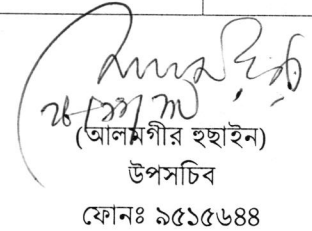 (আলমগীর হুছাইন)
উপসচিব
ফোনঃ ৯৫১৫৬৪৪